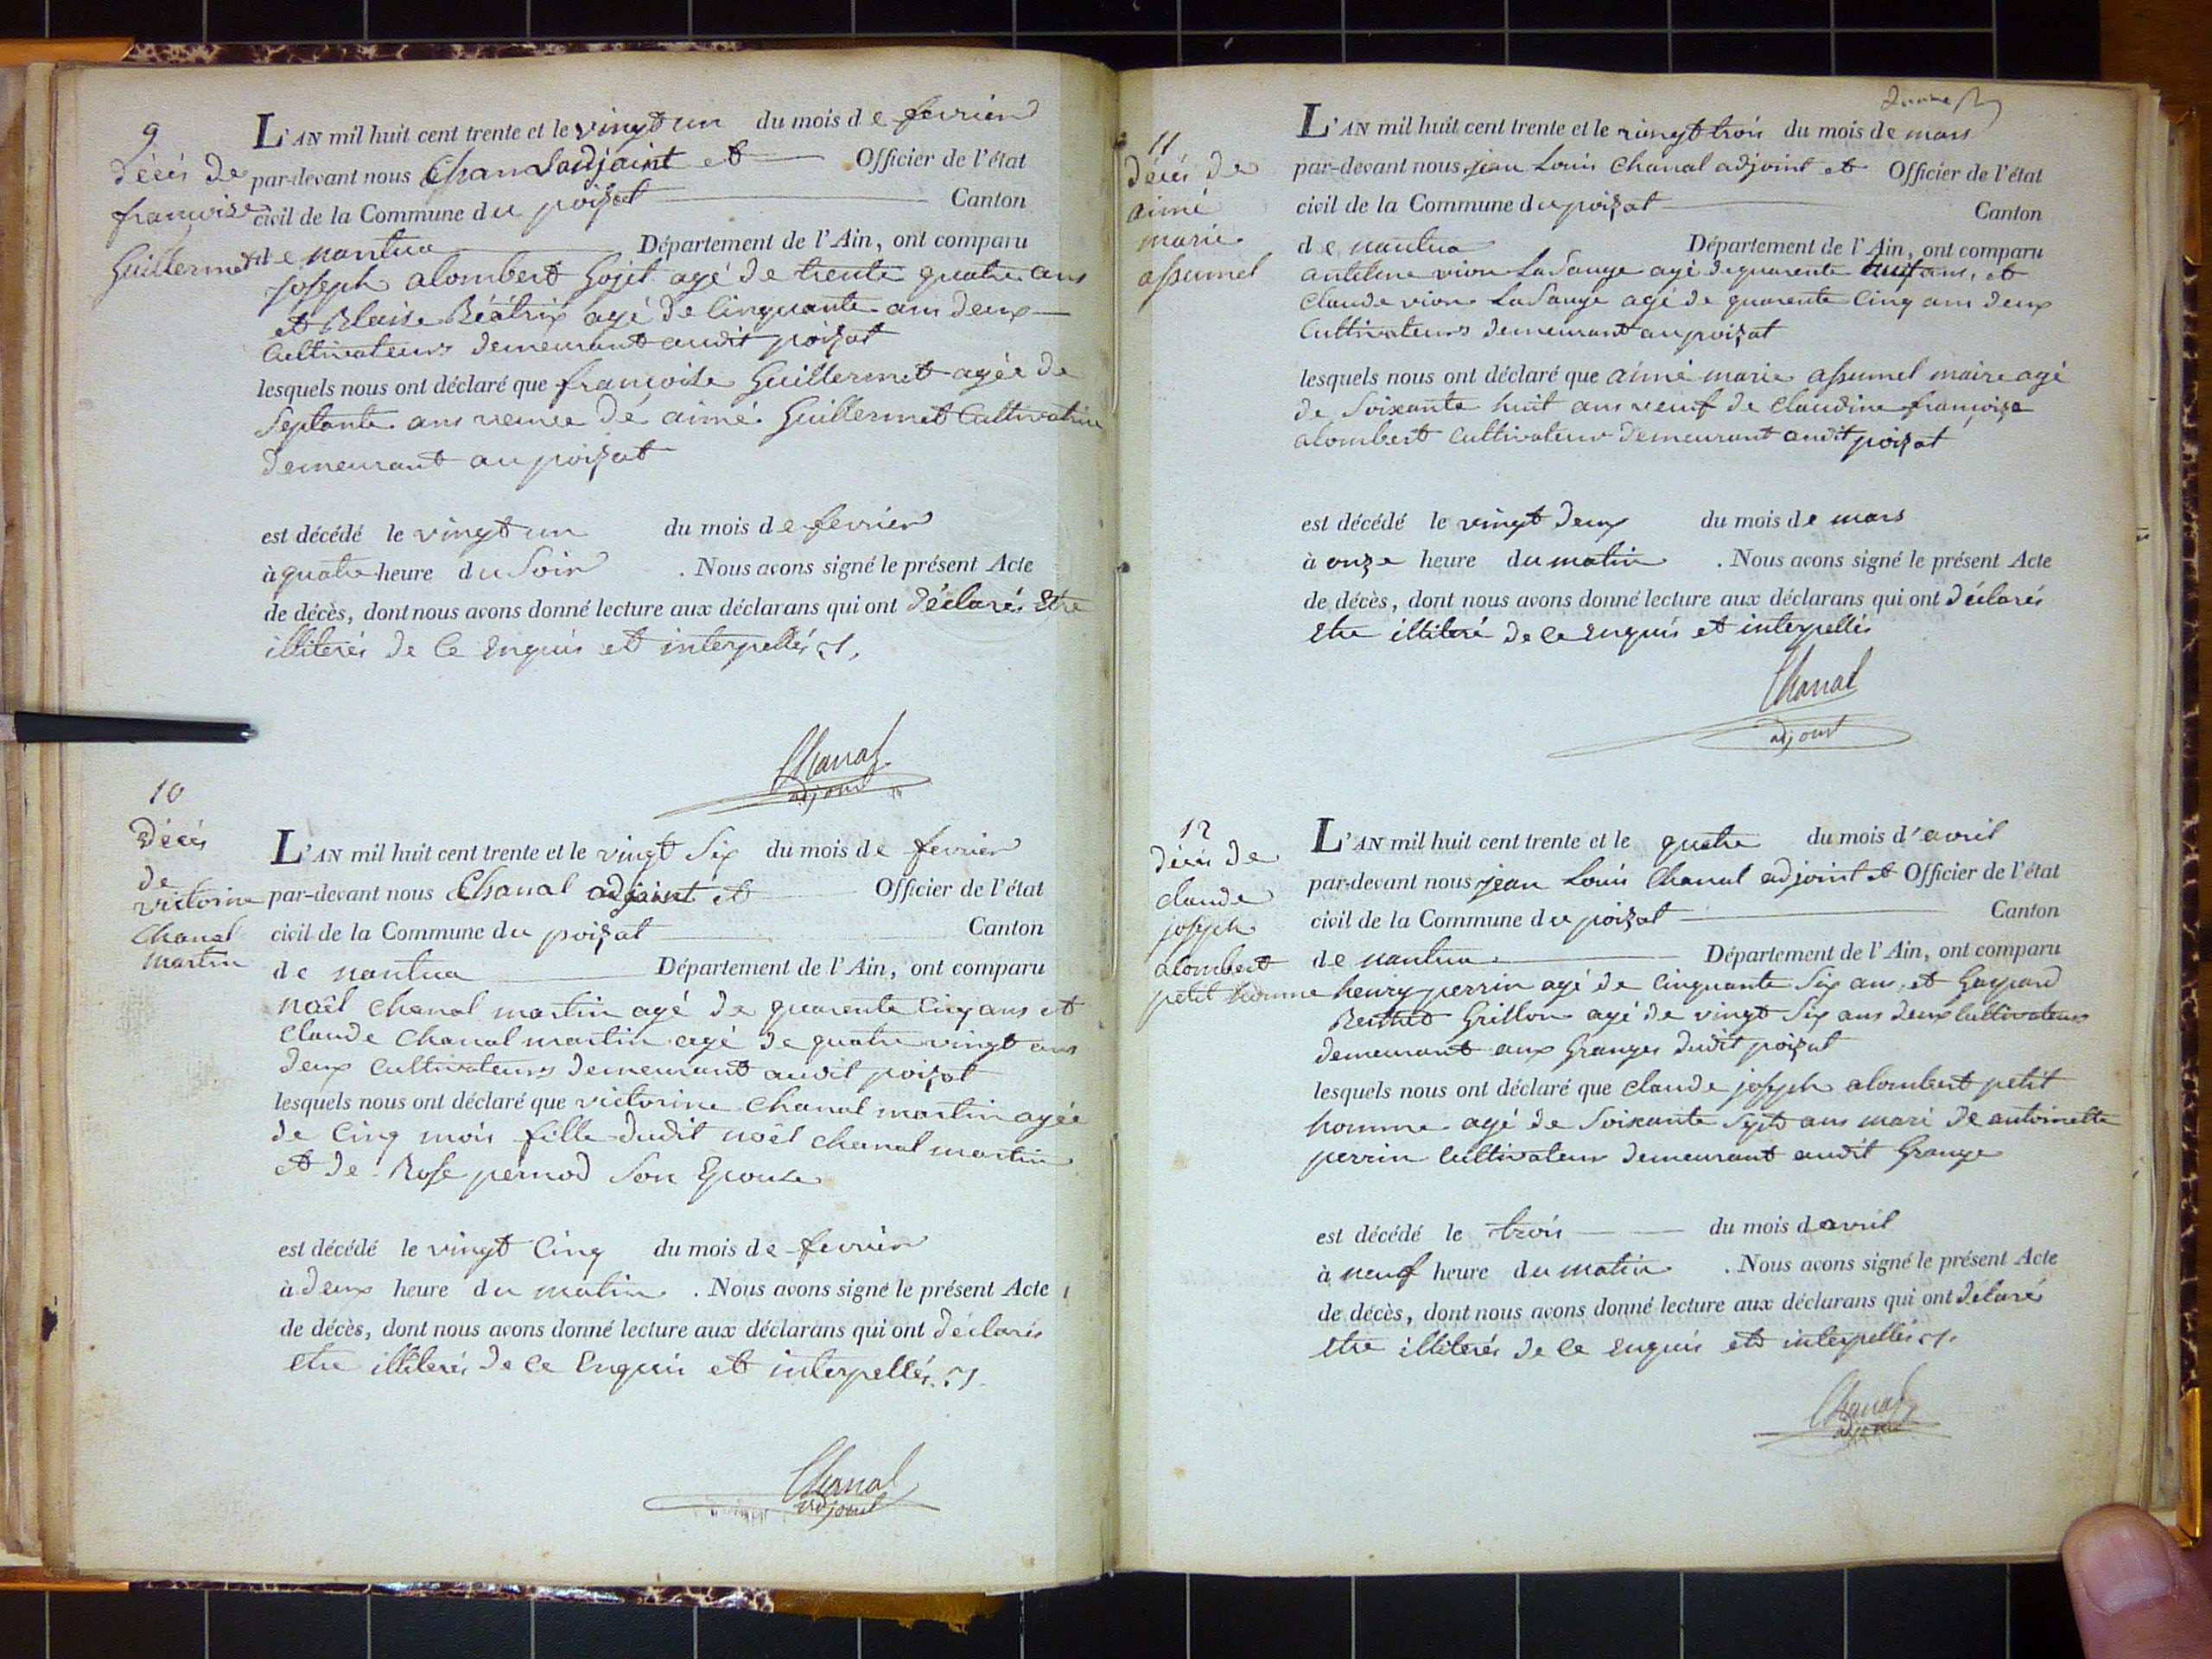 9
décés de
françoise
Guillermet
L'AN mil huit cent trente et le vingt un du mois de fevrier
par-devant nous Chanal adjoint et Officier de l'état
civil de la Commune du poizat Canton
de nantua Département de l'Ain, ont comparu
joseph alombert Gojet agé de trente quatre ans
et Blaise Béatrix agé de Cinquante ans deux
Cultivateurs demeurant audit poizat
lesquels nous ont déclaré que françoise Guillermet agée de
Septante ans veuve de aimé Guillermet Cultivatrice
demeurant au poizat
est décédé le vingt un du mois de fevrier
à quatre heure du Soir . Nous avons signé le présent Acte
de décès, dont nous avons donné lecture aux déclarans qui ont déclarés Etre
illiterés de Ce Enquis et interpellés
Chanal
adjoint
10
Décés
de
victorine
Chanal
martin
L'AN mil huit cent trente et le vingt Six du mois de fevrier
par-devant nous Chanal adjoint et Officier de l'état
civil de la Commune du poizat Canton
de nantua Département de l'Ain, ont comparu
noël Chanal martin agé de quarente Cinq ans et
Claude Chanal martin agé de quatre vingt ans
deux Cultivateurs demeurant audit poizat
lesquels nous ont déclaré que victorine Chanal martin agée
de Cinq mois fille dudit noël Chanal martin
et de Rose pernod Son Epouse
est décédé le vingt Cinq du mois de fevrier
à deux heure du matin . Nous avons signé le présent Acte
de décès, dont nous avons donné lecture aux déclarans qui ont déclarés
Etre illiterés de Ce Enquis et interpellés
Chanal
adjoint
11
décés de
aimé
marie
assumel
L'AN mil huit cent trente et le vingt trois du mois de mars
par-devant nous jean Louis Chanal adjoint et Officier de l'état
civil de la Commune du poizat Canton
de nantua Département de l'Ain, ont comparu
antelme vion LaSauge agé de quarente ans, et
Claude vion LaSauge agé de quarente Cinq ans deux
Cultivateurs demeurant au poizat
lesquels nous ont déclaré que aimé marie assumel maire agé
de Soixante huit ans veuf de Claudine françoise
alombert Cultivateur demeurant audit poizat
est décédé le vingt deux du mois de mars
à onze heure du matin . Nous avons signé le présent Acte
de décès, dont nous avons donné lecture aux déclarans qui ont déclarés
Etre illiteré de Ce Enquis et interpellés
Chanal
adjoint
12
décés de
claude
joseph
alombert
petit homme
L'AN mil huit cent trente et le quatre du mois d'avril
par-devant nous jean Louis Chanal adjoint et Officier de l'état
civil de la Commune du poizat Canton
de nantua Département de l'Ain, ont comparu
henry perrin agé de Cinquante Six ans, et Gaspard
Berthet Grillon agé de vingt Six ans deux Cultivateurs
demeurant aux Granges dudit poizat
lesquels nous ont déclaré que claude joseph alombert petit
homme agé de Soixante Sept ans mari de antoinette
perrin Cultivateur demeurant audit Grange
est décédé le trois du mois d avril
à neuf heure du matin . Nous avons signé le présent Acte
de décès, dont nous avons donné lecture aux déclarans qui ont déclaré
Etre illiterés de Ce Enquis et interpellés
Chanal
adjoint